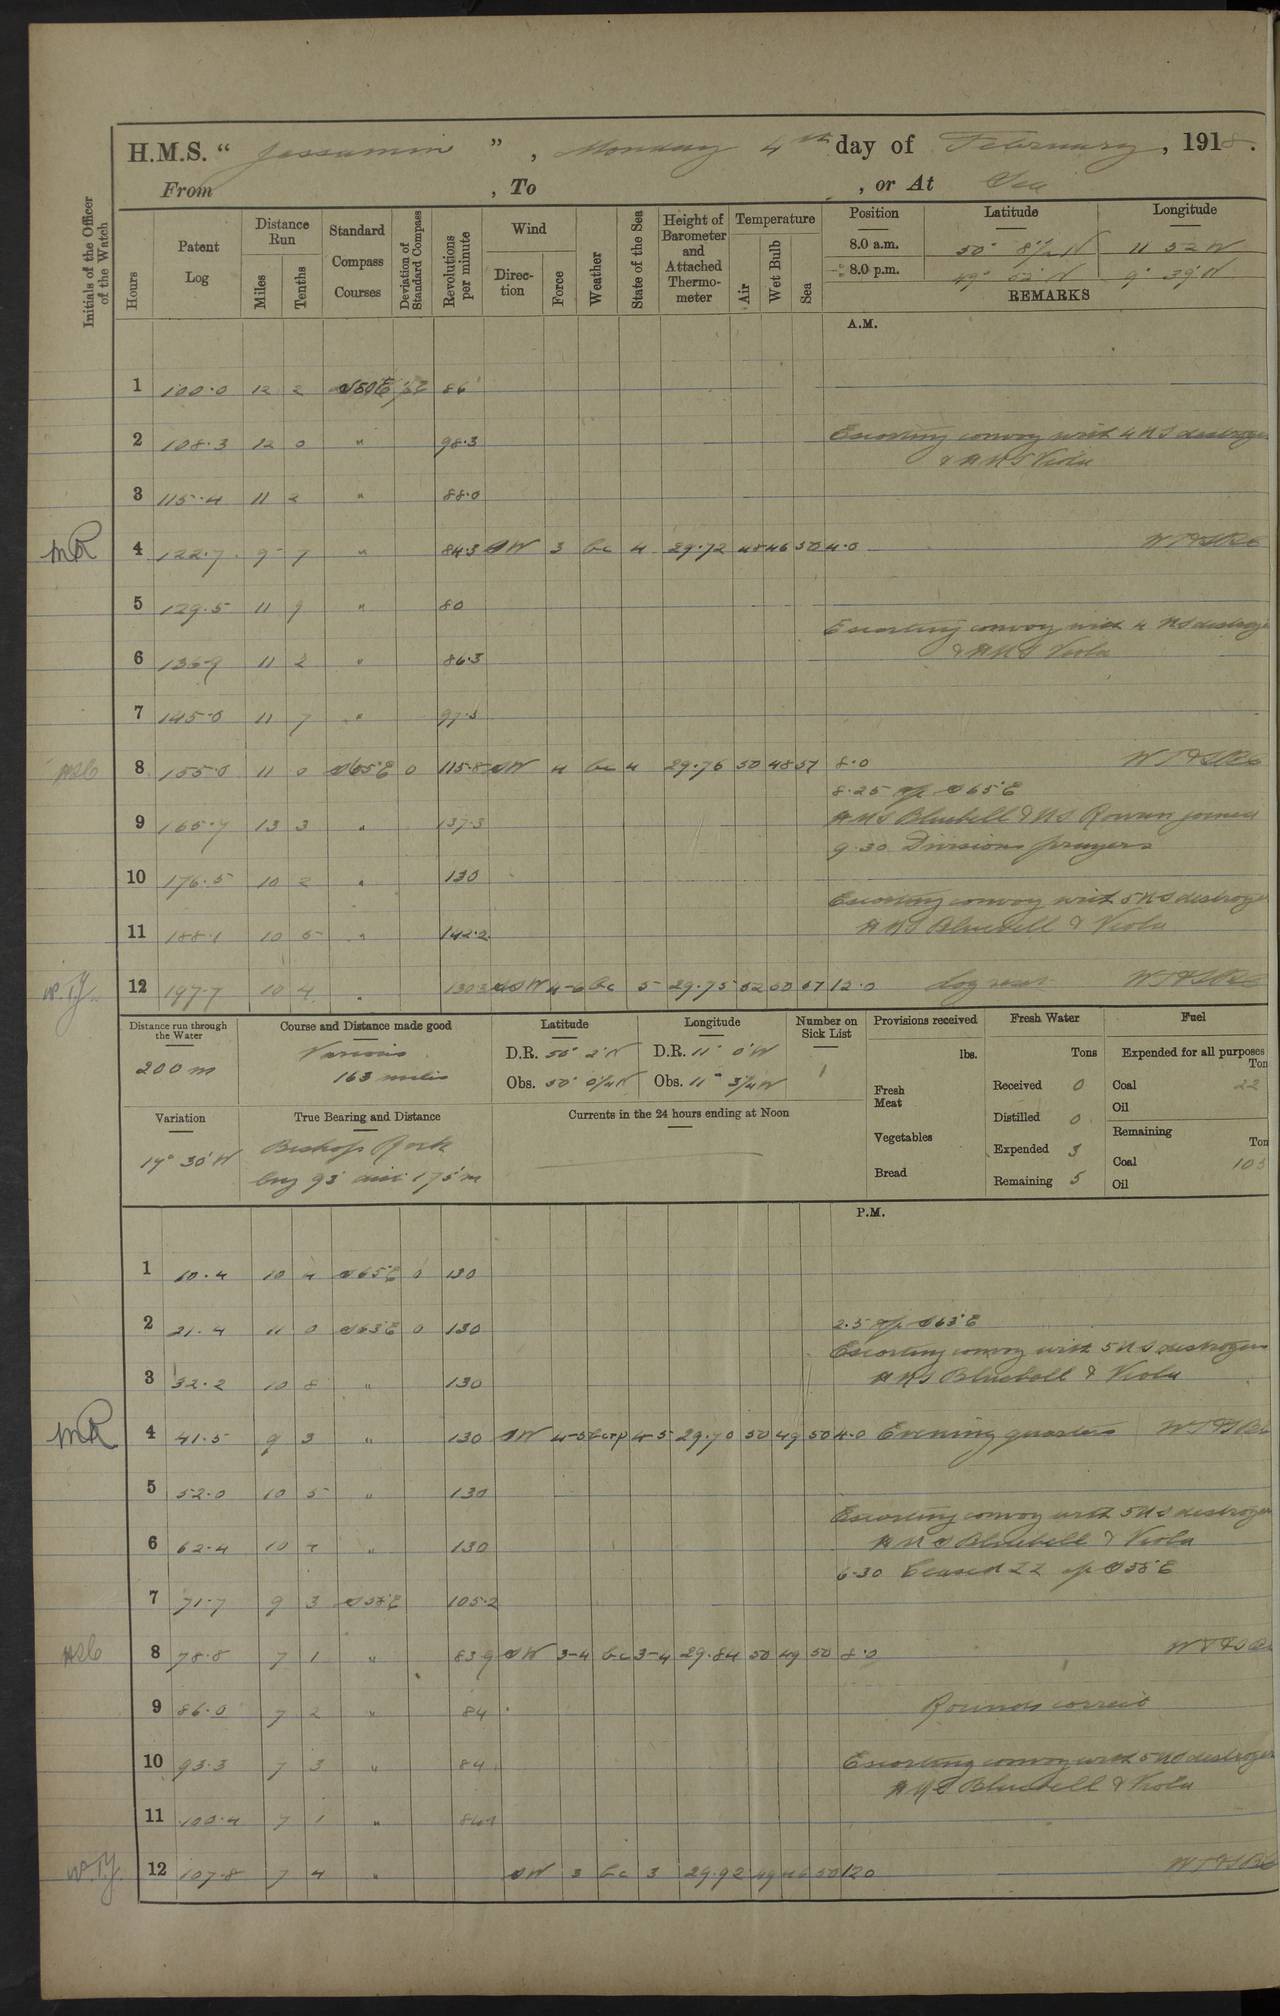 H.M.S. “ Jessamine ” , Monday 4th day of February , 1918 .
From , To , or At Sea
Initials of the Officer of the Watch
Hours Patent Log Distance Run Miles Tenths Standard Compass Courses Deviation of Standard Compass Revolutions per minute Wind Direc-tion Force Weather State of the Sea Height of Barometer and Attached Thermo-meter Temperature Air Wet Bulb Sea Position Latitude Longitude
8.0 a.m. 50° 8½ N 11 52 W
8.0 p.m. 49° 52' N 9° 39' W
REMARKS
A.M.
1 100.0 12 2 S50E 86
2 108.3 12 0 " 98.3 Escorting convoy with 4 US destroyers
& HMS Viola
3 115.4 11 2 " 88.0
MR 4 122.7 9 7 " 84.3 SW 3 bc 4 29.72 48 46 50 4.0
5 129.5 11 9 " 80
Escorting convoy with 4 US destroyers
6 136.9 11 2 " 86.3 & HMS Viola
7 145.0 11 7 " 97.3
8 155.0 11 0 S65°E 0 115.8 SW 4 bc 4 29.76 50 48 51 8.0
8.25 S65°E
9 165.7 13 3 " 137.3 HMS Bluebell & US Rowan joined
9.30 Divisions prayers
10 176.5 10 2 " 130
Escorting convoy with 5 US destroyers
11 188.1 10 5 " 142.2 HMS Bluebell & Viola
12 197.7 10 4 " 130.3 SSW 4-6 bc 5 29.75 52 50 51 12.0
Distance run through the Water Course and Distance made good Latitude Longitude Number on Sick List Provisions received Fresh Water Fuel
200 m Various
163 miles
D.R. 50° 2' N D.R. 11° 0' W 1 lbs. Tons Expended for all purposes Ton
Obs. 50° 0¼ N Obs. 11° 3¼ W Fresh Meat Received 0 Coal 22
Variation True Bearing and Distance Currents in the 24 hours ending at Noon Distilled 0 Oil
17° 30' W Bishop Rock Vegetables Expended 3 Remaining Ton
brg 93° dist 175 m Bread Remaining 5 Coal 105
Oil
P.M.
1 10.4 10 4 S65°E 0 130
2 21.4 11 0 S63°E 0 130 2.5 S63°E
Escorting convoy with 5 US destroyers
3 32.2 10 8 " 130 HMS Bluebell & Viola
MR 4 41.5 9 3 " 130 SW 4-5 4-5 29.70 50 49 50 4.0 Evening quarters
5 52.0 10 5 " 130
Escorting convoy with 5 US destroyers
6 62.4 10 4 " 130 HMS Bluebell & Viola
6.30 Ceased ZZ S58°E
7 71.7 9 3 S58°E 105.2
8 78.8 7 1 " 83.9 SW 3-4 bc 3-4 29.84 50 49 50 8.0
9 86.0 7 2 " 84 Rounds correct
10 93.3 7 3 " 84 Escorting convoy with 5 US destroyers
HMS Bluebell & Viola
11 100.4 7 1 " 84
12 107.8 7 4 " SW 3 bc 3 29.92 49 46 50 12.0